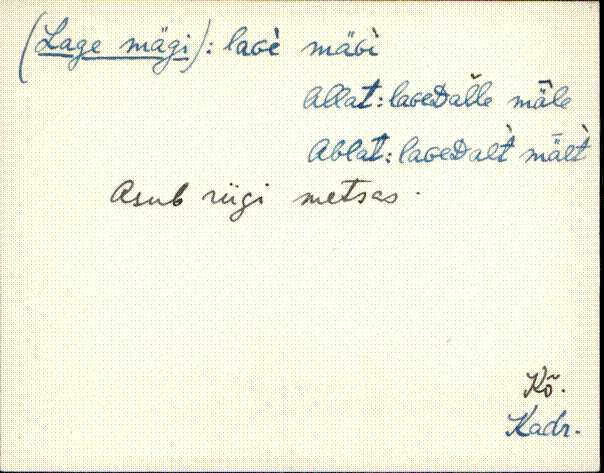 (Lage mägi): laGè mäGì
Allat: laGeDàlle mäle
Ablat: laGeDalt̀ mält̀
Asub riigi metsas.
Kõ.
Kadr.